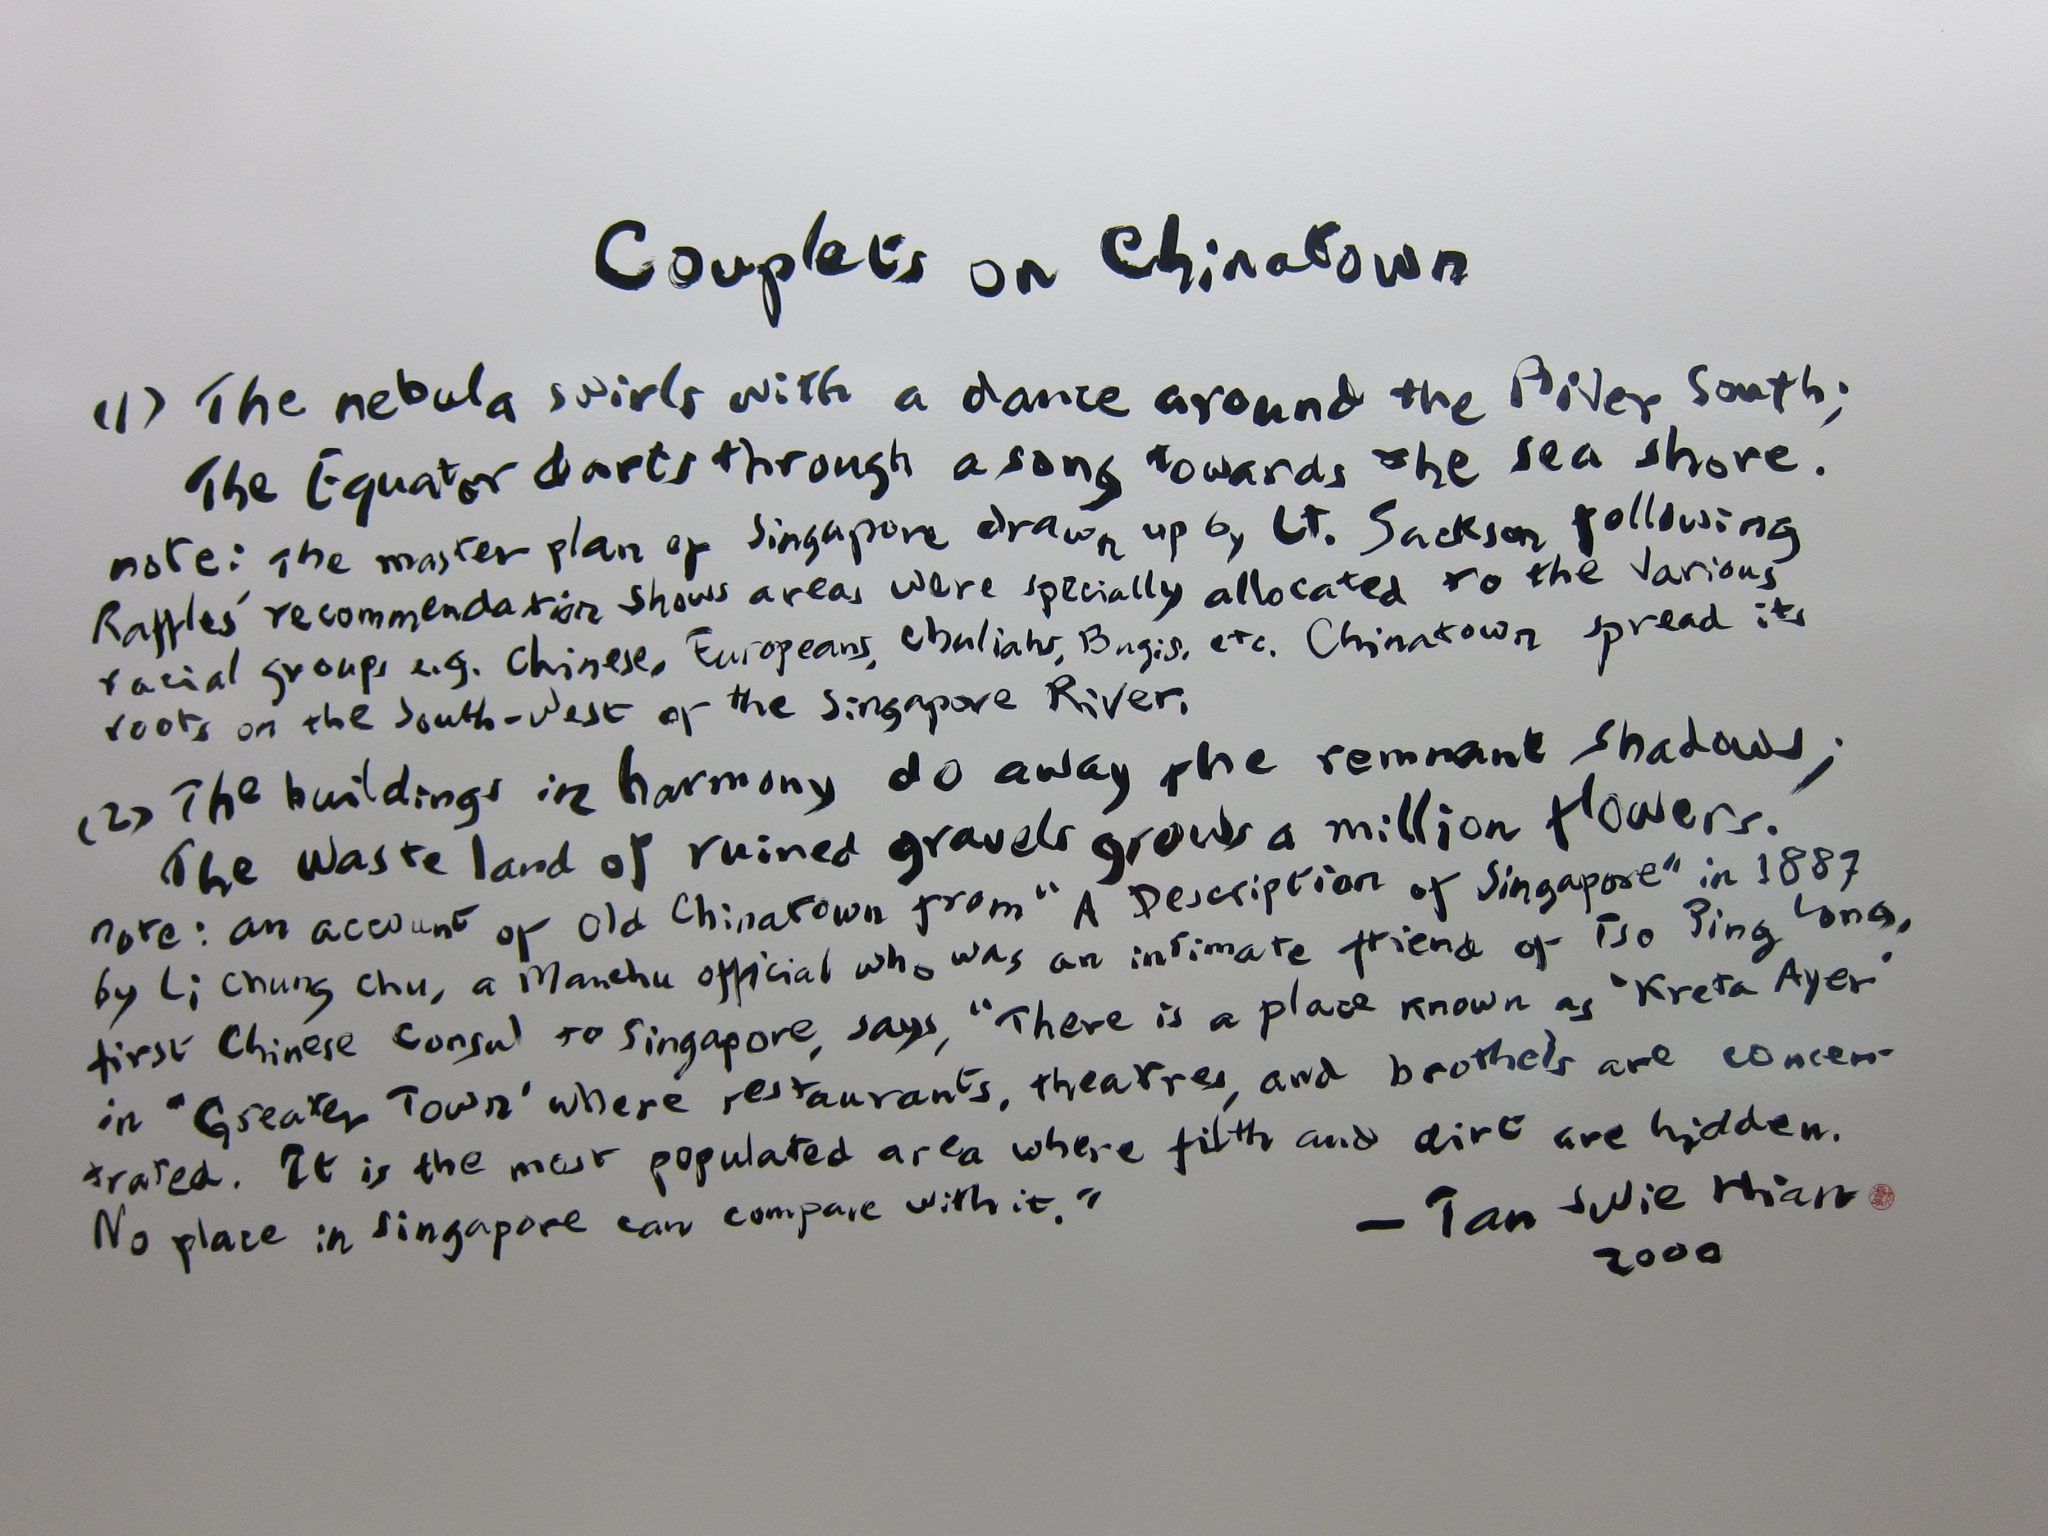 Couplets on Chinatown
(1) The nebula swirls with a dance around the River South;
The Equator darts through a song towards the sea shore.
note: The master plan of Singapore drawn up by Lt. Jackson following
Raffles' recommendation shows areas were specially allocated to the various
racial groups e.g. Chinese, Europeans, Chuliahs, Bugis, etc. Chinatown spread its
roots on the South-West of the Singapore River.
(2) The buildings in harmony do away the remnant shadows;
The waste land of ruined gravels grows a million flowers.
note: an account of Old Chinatown from "A Description of Singapore" in 1887
by Li Chung Chu, a Manchu official who was an intimate friend of Tso Ping Long,
first Chinese Consul to Singapore, says, "There is a place known as 'Kreta Ayer'
in 'Greater Town' where restaurants, theatres, and brothels are concen-
trated. It is the most populated area where filth and dirt are hidden.
No place in Singapore can compare with it."
— Tan Swie Hian
2000